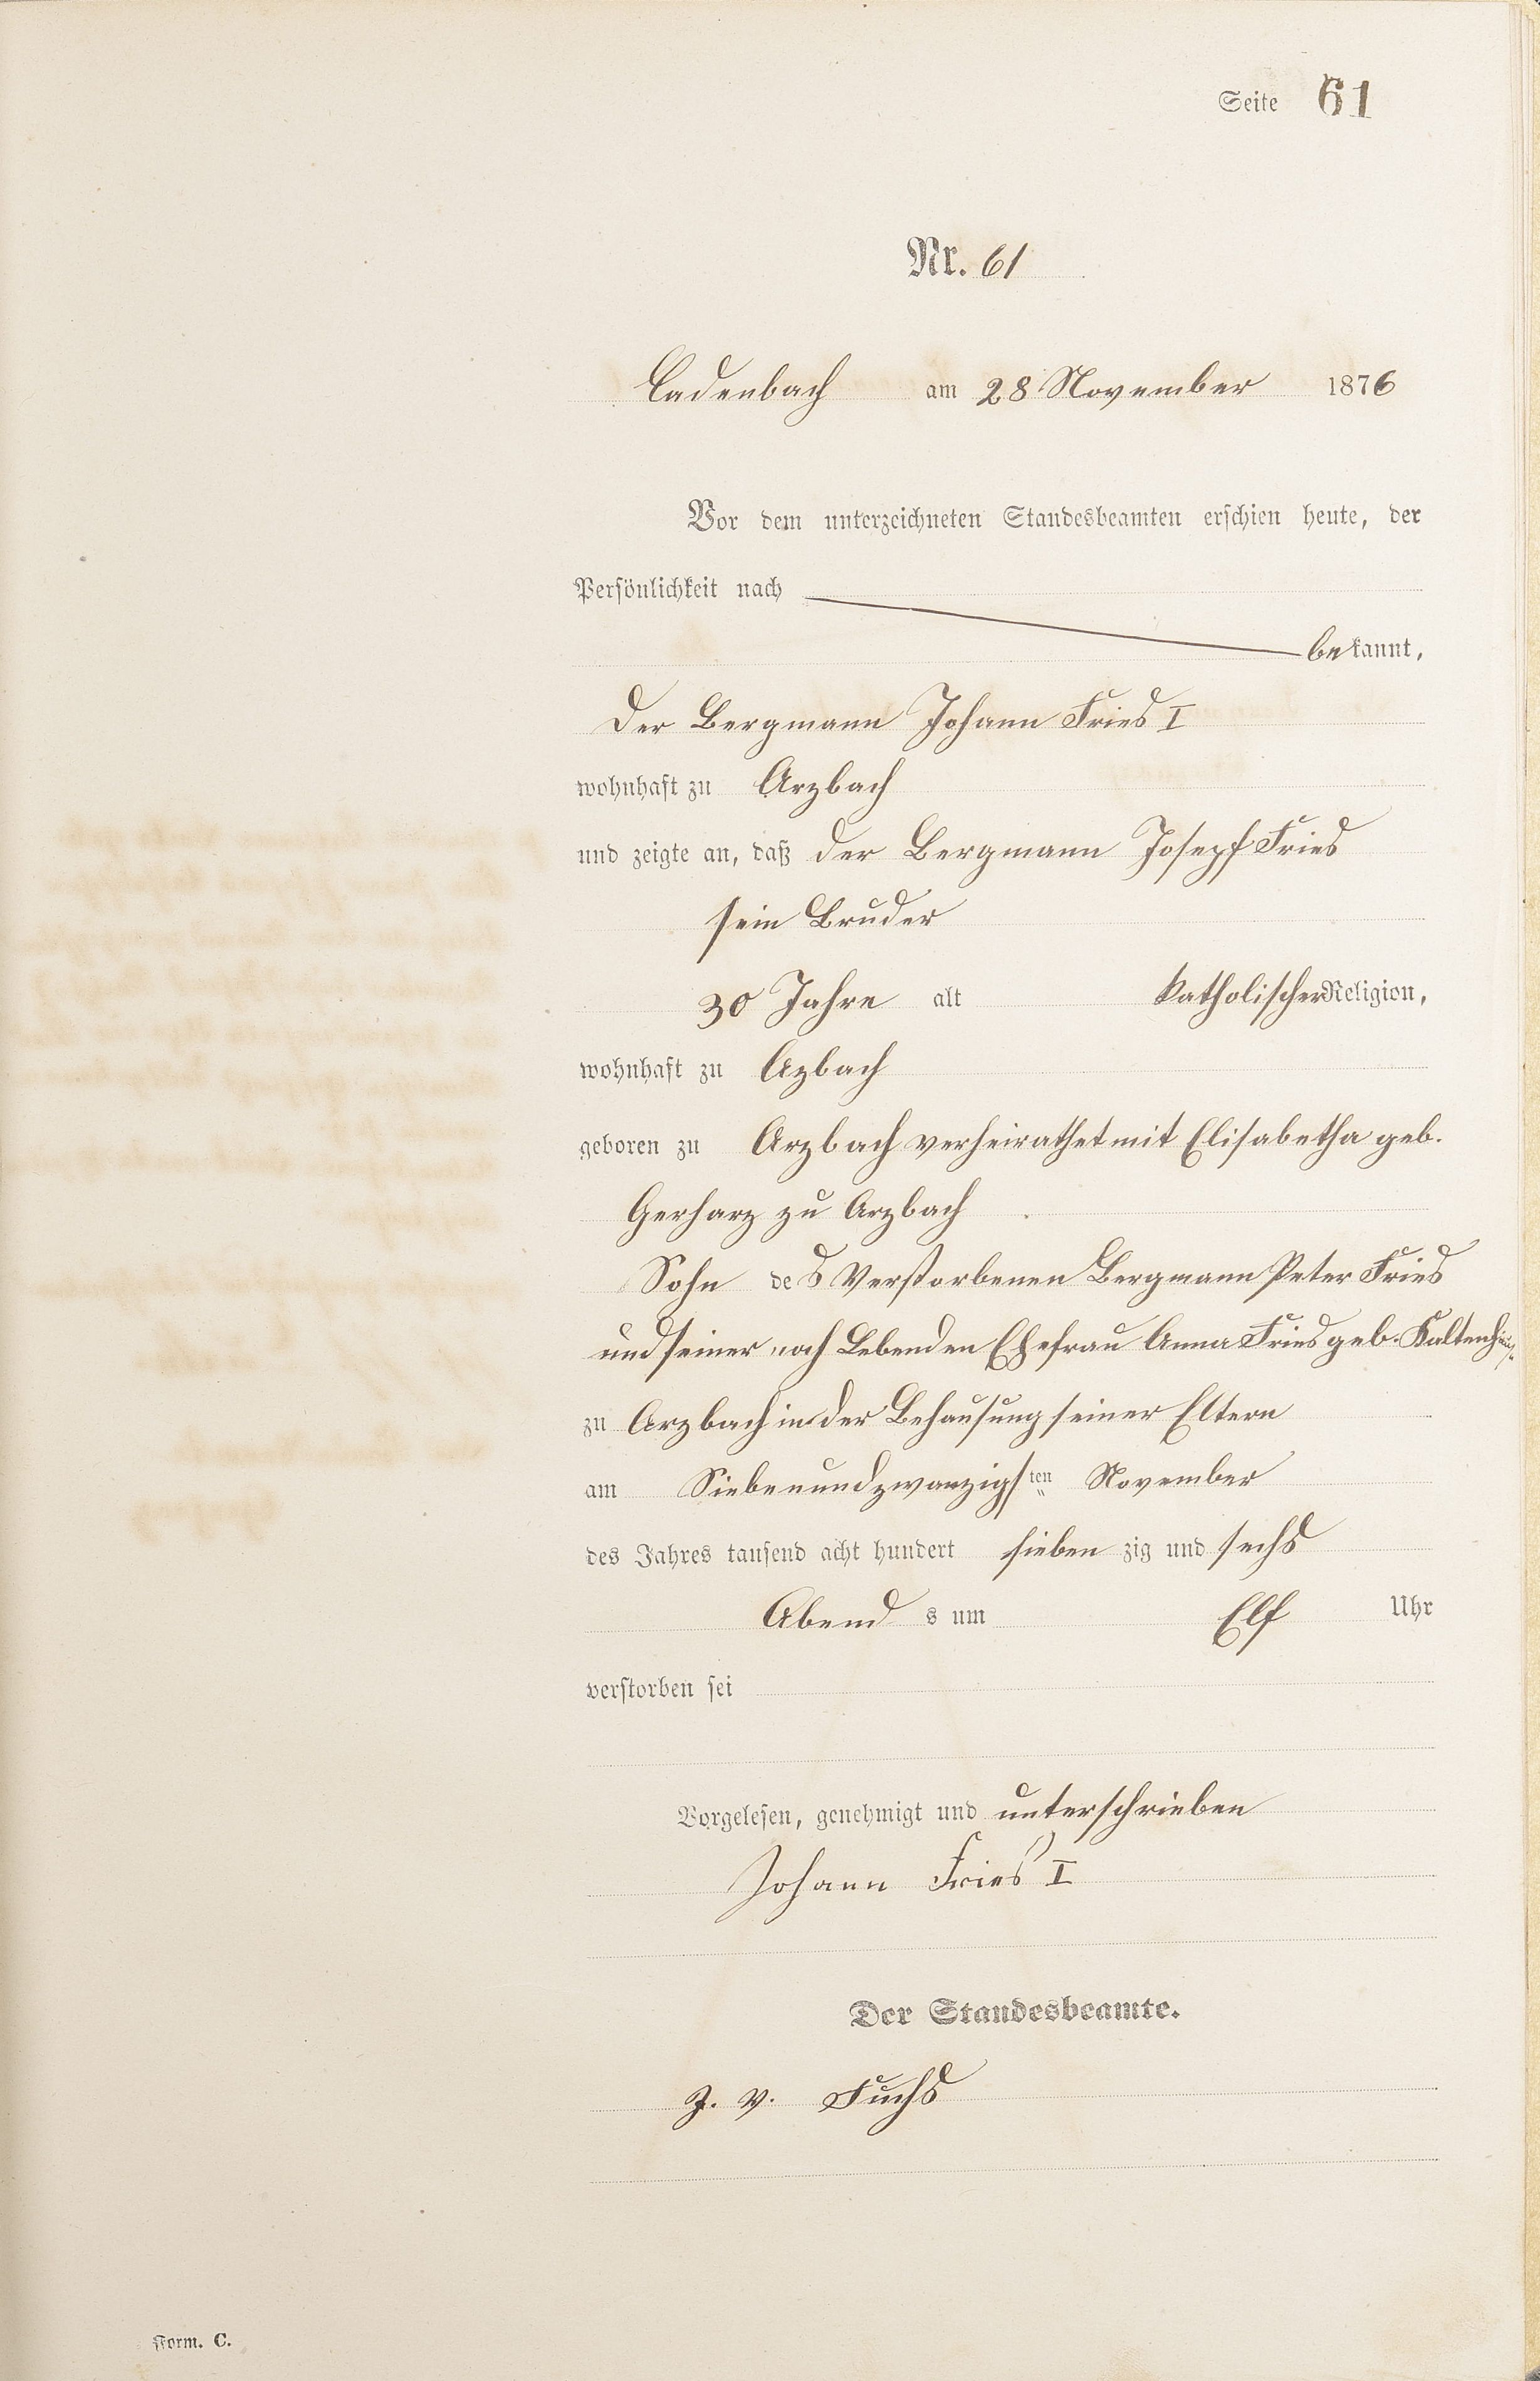 Seite 61
Nr. 61
Cadenbach am 28 November 1876
Vor dem unterzeichneten Standesbeamten erschien heute, der
Persönlichkeit nach
bekannt,
der Bergmann Johann Fries I
wohnhaft zu Arzbach
und zeigte an, daß der Bergmann Josepf Fries
sein Bruder
30 Jahre alt katholischer Religion,
wohnhaft zu Azbach
geboren zu Arzbach verheirathet mit Elisabetha geb.
Gerharz zu Arzbach
Sohn des Verstorbenen Bergmann Peter Fries
und seiner noch Lebenden Ehefrau Anna Fries geb.
zu Arzbach in der Behausung seiner Eltern
am Siebenundzwanzigsten November
des Jahres tausend acht hundert sieben zig und sechs
Abend s um Elf Uhr
verstorben sei
Vorgelesen, genehmigt und unterschrieben
Johann Fries I
Der Standesbeamte.
z. v. Fuchs
Form. C.